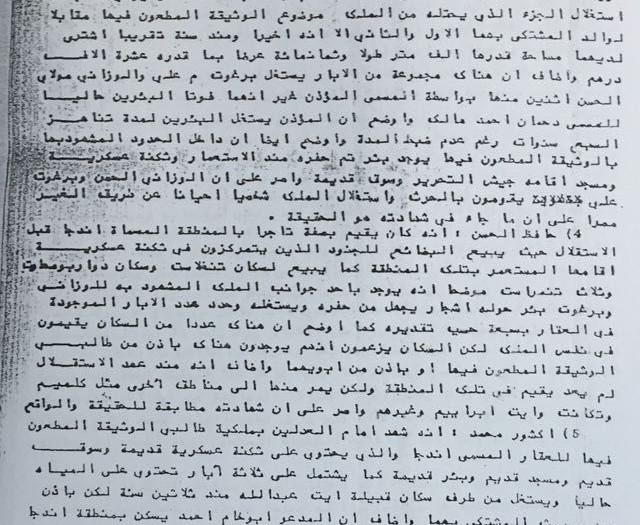 استغلال الجزء الذي يحتله من الملك موضوع الوثيقة المطعون فيها مقابلا
لوالد المشتكى بهما الاول والثاني الا انه اخيرا ومنذ سنة تقريبا اشترى
لديهما مساحة قدرها الف متر طولا وثمانمائة عرضا بما قدره عشرة الاف
درهم واضاف ان هناك مجموعة من الابار يستغل برغوت م علي والوزاني مولاي
الحسن اثنين منها بواسطة المسمى المؤذن غير انهما فوتا البئرين حاليا
للمسمى دحمان احمد هالك واوضح ان المؤذن يستغل البئرين لمدة تناهز
السبع سنوات رغم عدم ضبط المدة واوضح ايضا ان داخل الحدود المشهود بها
بالوثيقة المطعون فيها يوجد بئر تم حفره منذ الاستعمار وثكنة عسكرية
ومسجد اقامه جيش التحرير وسوق قديمة واصر على ان الوزاني الحسن وبرغوت
علي يقومون بالحرث واستغلال الملك شخصيا احيانا عن طريق الغير
مصرا على ان ما جاء في شهادته هو الحقيقة .
4) حافظ الحسن : انه كان يقيم بصفة تاجرا بالمنطقة المسماة اندجا قبل
الاستقلال حيث يبيع البضائع للجنود الذين يتمركزون في ثكنة عسكرية
اقامها المستعمر بتلك المنطقة كما يبيع لسكان تنخلاست وسكان دوار
وثلاث تنمراست موضحا انه يوجد باحد جوانب الملك المشهود به للوزاني
وبرغوت بئر حوله اشجار يجهل من حفره ويستغله وحدد عدد الابار الموجودة
في العقار بسبعة حسب تقديره كما اوضح ان هناك عددا من السكان يقيمون
في نفس الملك لكن السكان يزعمون انهم يوجدون هناك باذن من طالبي
الوثيقة المطعون فيها او باذن من ابويهما واضاف انه منذ عهد الاستقلال
لم يعد يقيم في تلك المنطقة ولكن يمر منها الى مناطق اخرى مثل كلميم
وتكانت وايت ابراييم وغيرهم واصر على ان شهادته مطابقة للحقيقة والواقع
5) اكشور محمد : انه شهد امام العدلين بملكية طالبي الوثيقة المطعون
فيها للعقار المسمى اندجا والذي يحتوي على ثكنة عسكرية قديمة وسوق
قديم ومسجد قديم وبئر قديمة كما يشتمل على ثلاثة آبار تحتوي على المياه
حاليا ويستغل من طرف سكان قبيلة ايت عبدالله منذ ثلاثين سنة لكن باذن
المشتكى بهما واضاف ان المدعو ابوخام احمد يسكن بمنطقة اندجا